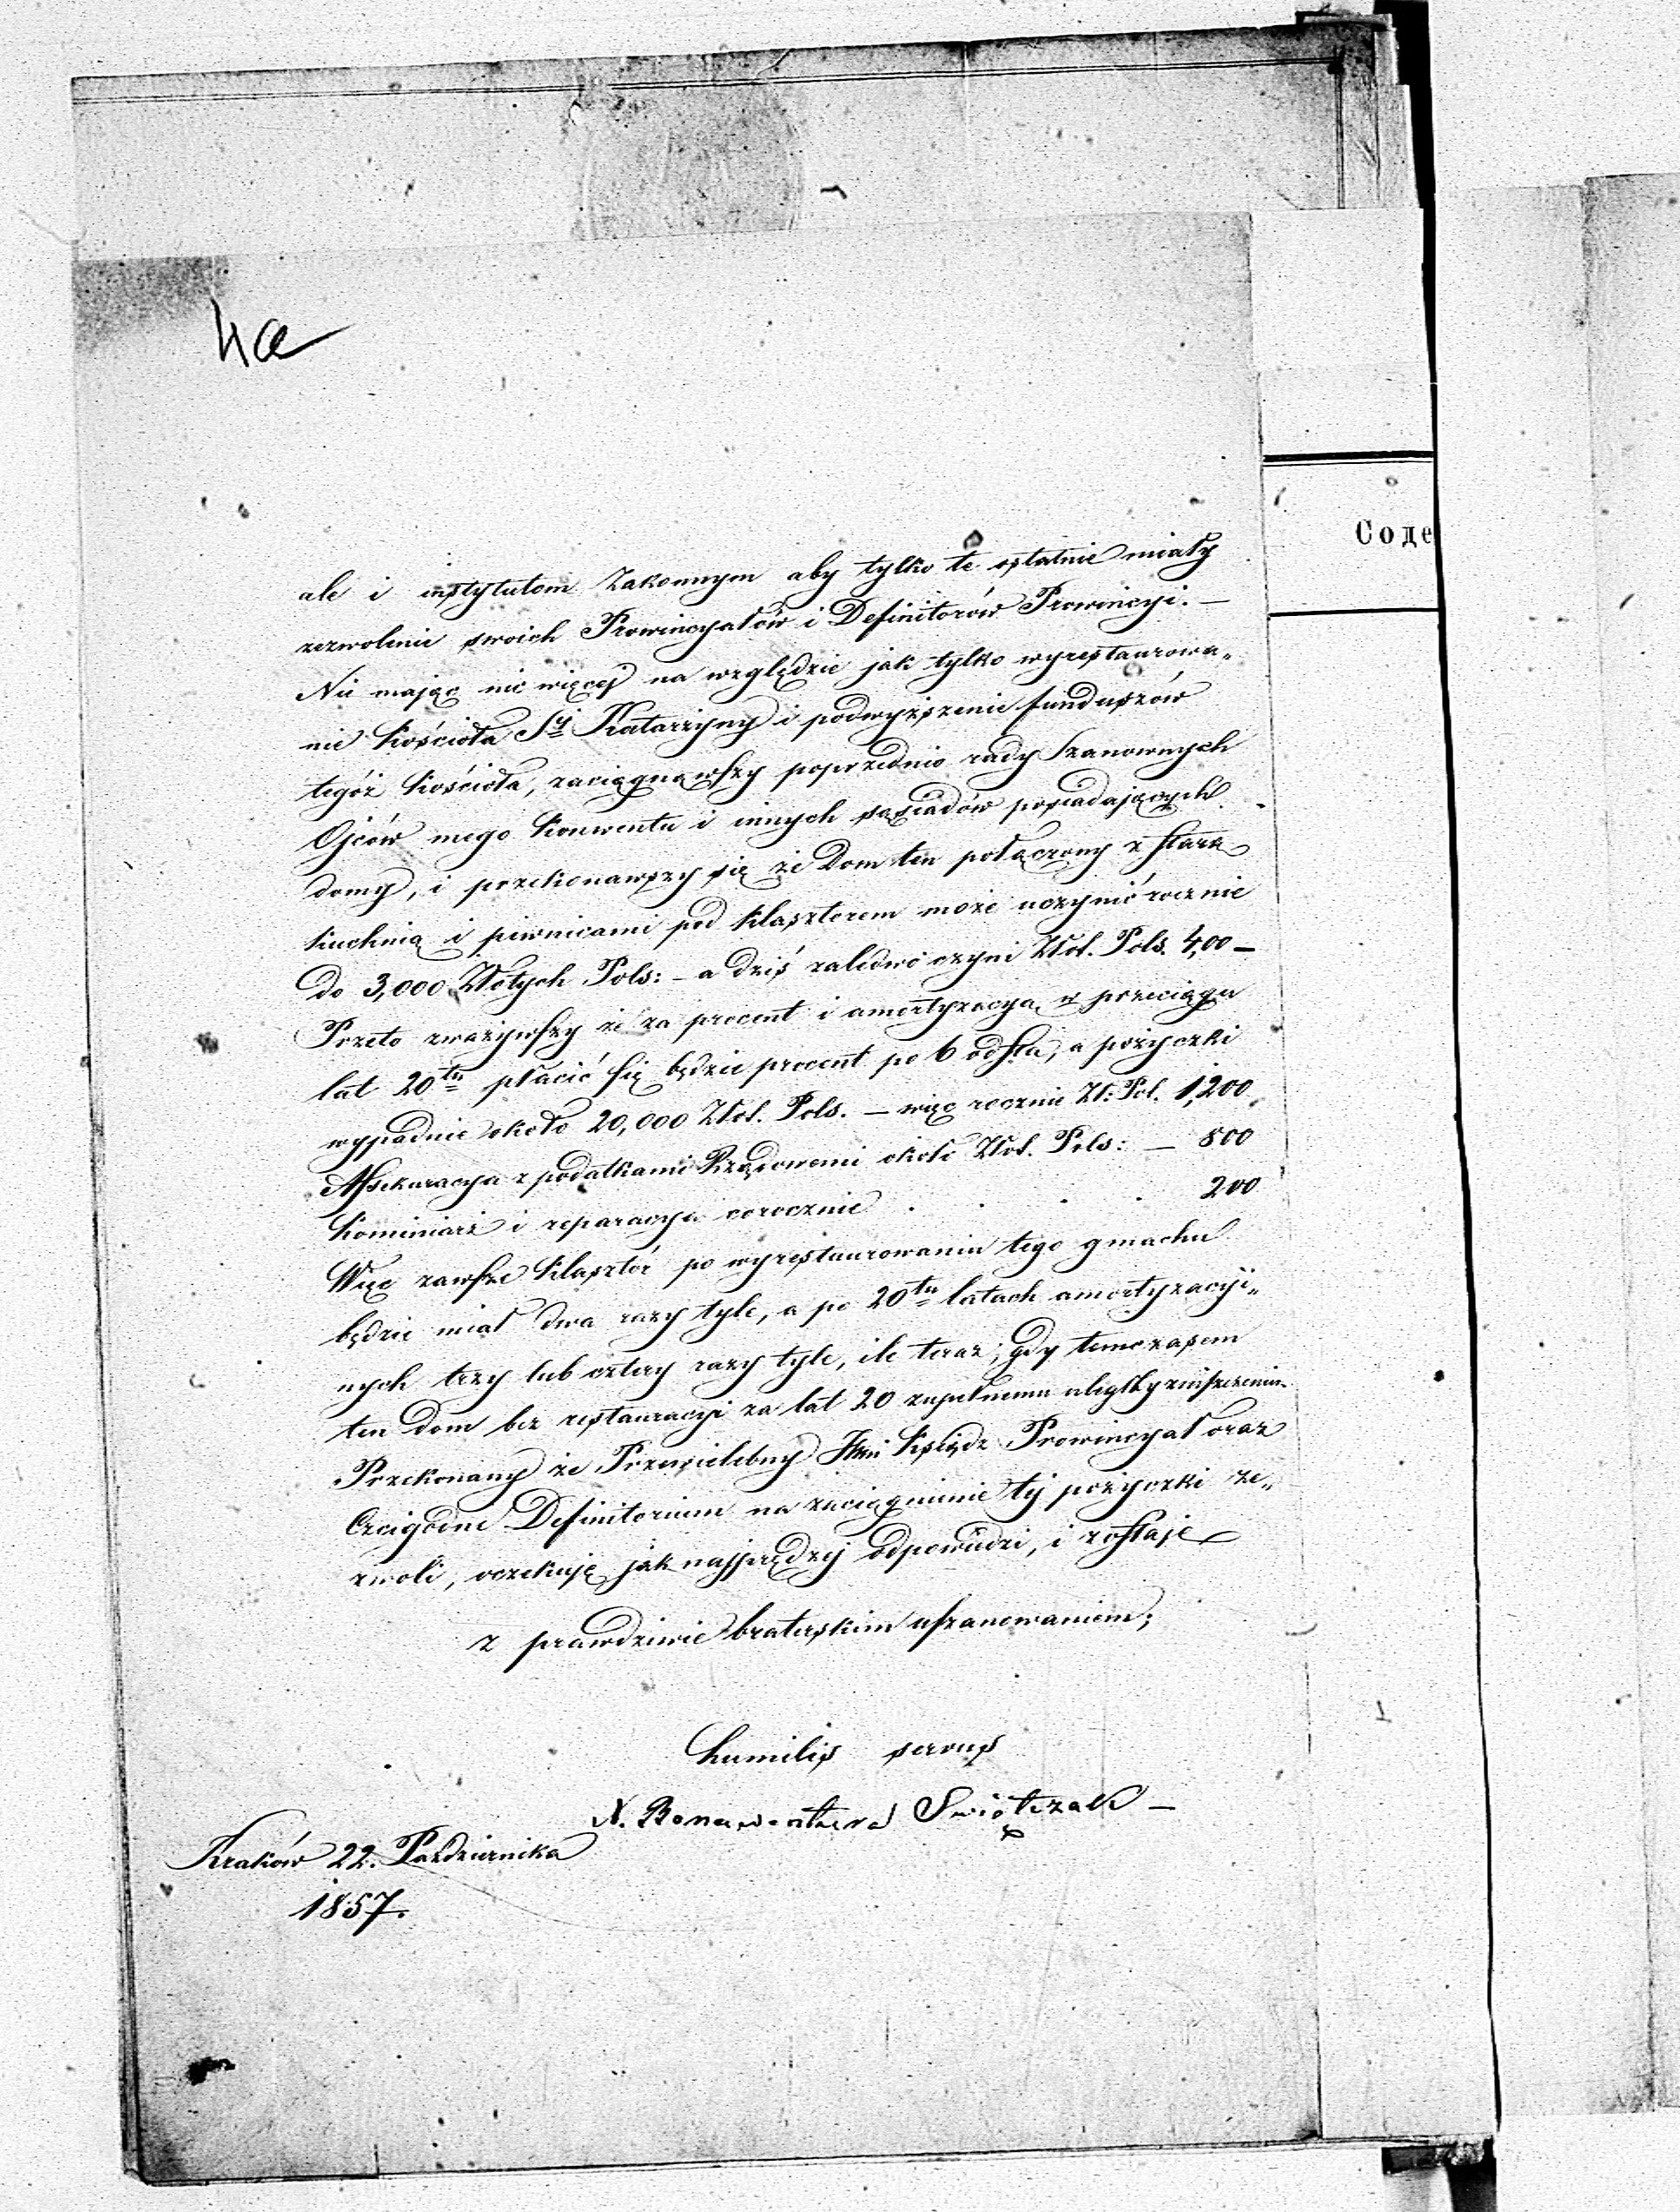 4a
Соде
ale i instytutom Zakonnym aby tylko te ostatnie miały
zezwolenie swoich Prowincyałów i Definitorów Prowincyi. —
Nie mając nic więcej na względzie jak tylko wyrestaurowa„
nie Kościoła Sy Katarzyny i podwyższenie funduszów
tegóż Kościoła, zaciągnąwszy poprzednio rady Szanownych
Ojców mego Konwentu i innych sąsiadów posiadających
domy, i przekonawszy się że Dom ten połączony z starą
kuchnią i piwnicami pod Klasztorem może uczynić rocznie
do 3,000 Złotych Pols: — a dziś zaledwo czyni Złot. Pols. 4,00 —
Przeto zważywszy że za procent i amortyzacya w przeciągu
lat 20tu płacić się będzie procent po 6 od sta, a pożyczki
wypadnie około 20,000 Złot. Pols. — więc rocznie Zł: Pol. 1,200
Assekuracya z podatkami Rządowemi około Złot. Pols: — 800
Kominiarz i reparacya corocznie . . . . 200
Więc zawsze Klasztór po wyrestaurowaniu tego gmachu
będzie miał dwa razy tyle, a po 20tu latach amortyzacyi„
nych trzy lub cztery razy tyle, ile teraz; gdy temczasem
ten dom bez restauracyi za lat 20 zupełnemu uległby zniszczeniu.
Przekonany że Przewielebny Ksiądz Prowincyał oraz
Czcigodne Definitorium na zaciągnienie tej pożyczki ze„
zwoli, oczekuję jak najprędzej odpowiedzi, i zostaję
z prawdziwie braterskim uszanowaniem;
humilis servus
X. Bonawentura Swiątczak —
Kraków 22. Pazdziernika
1857.